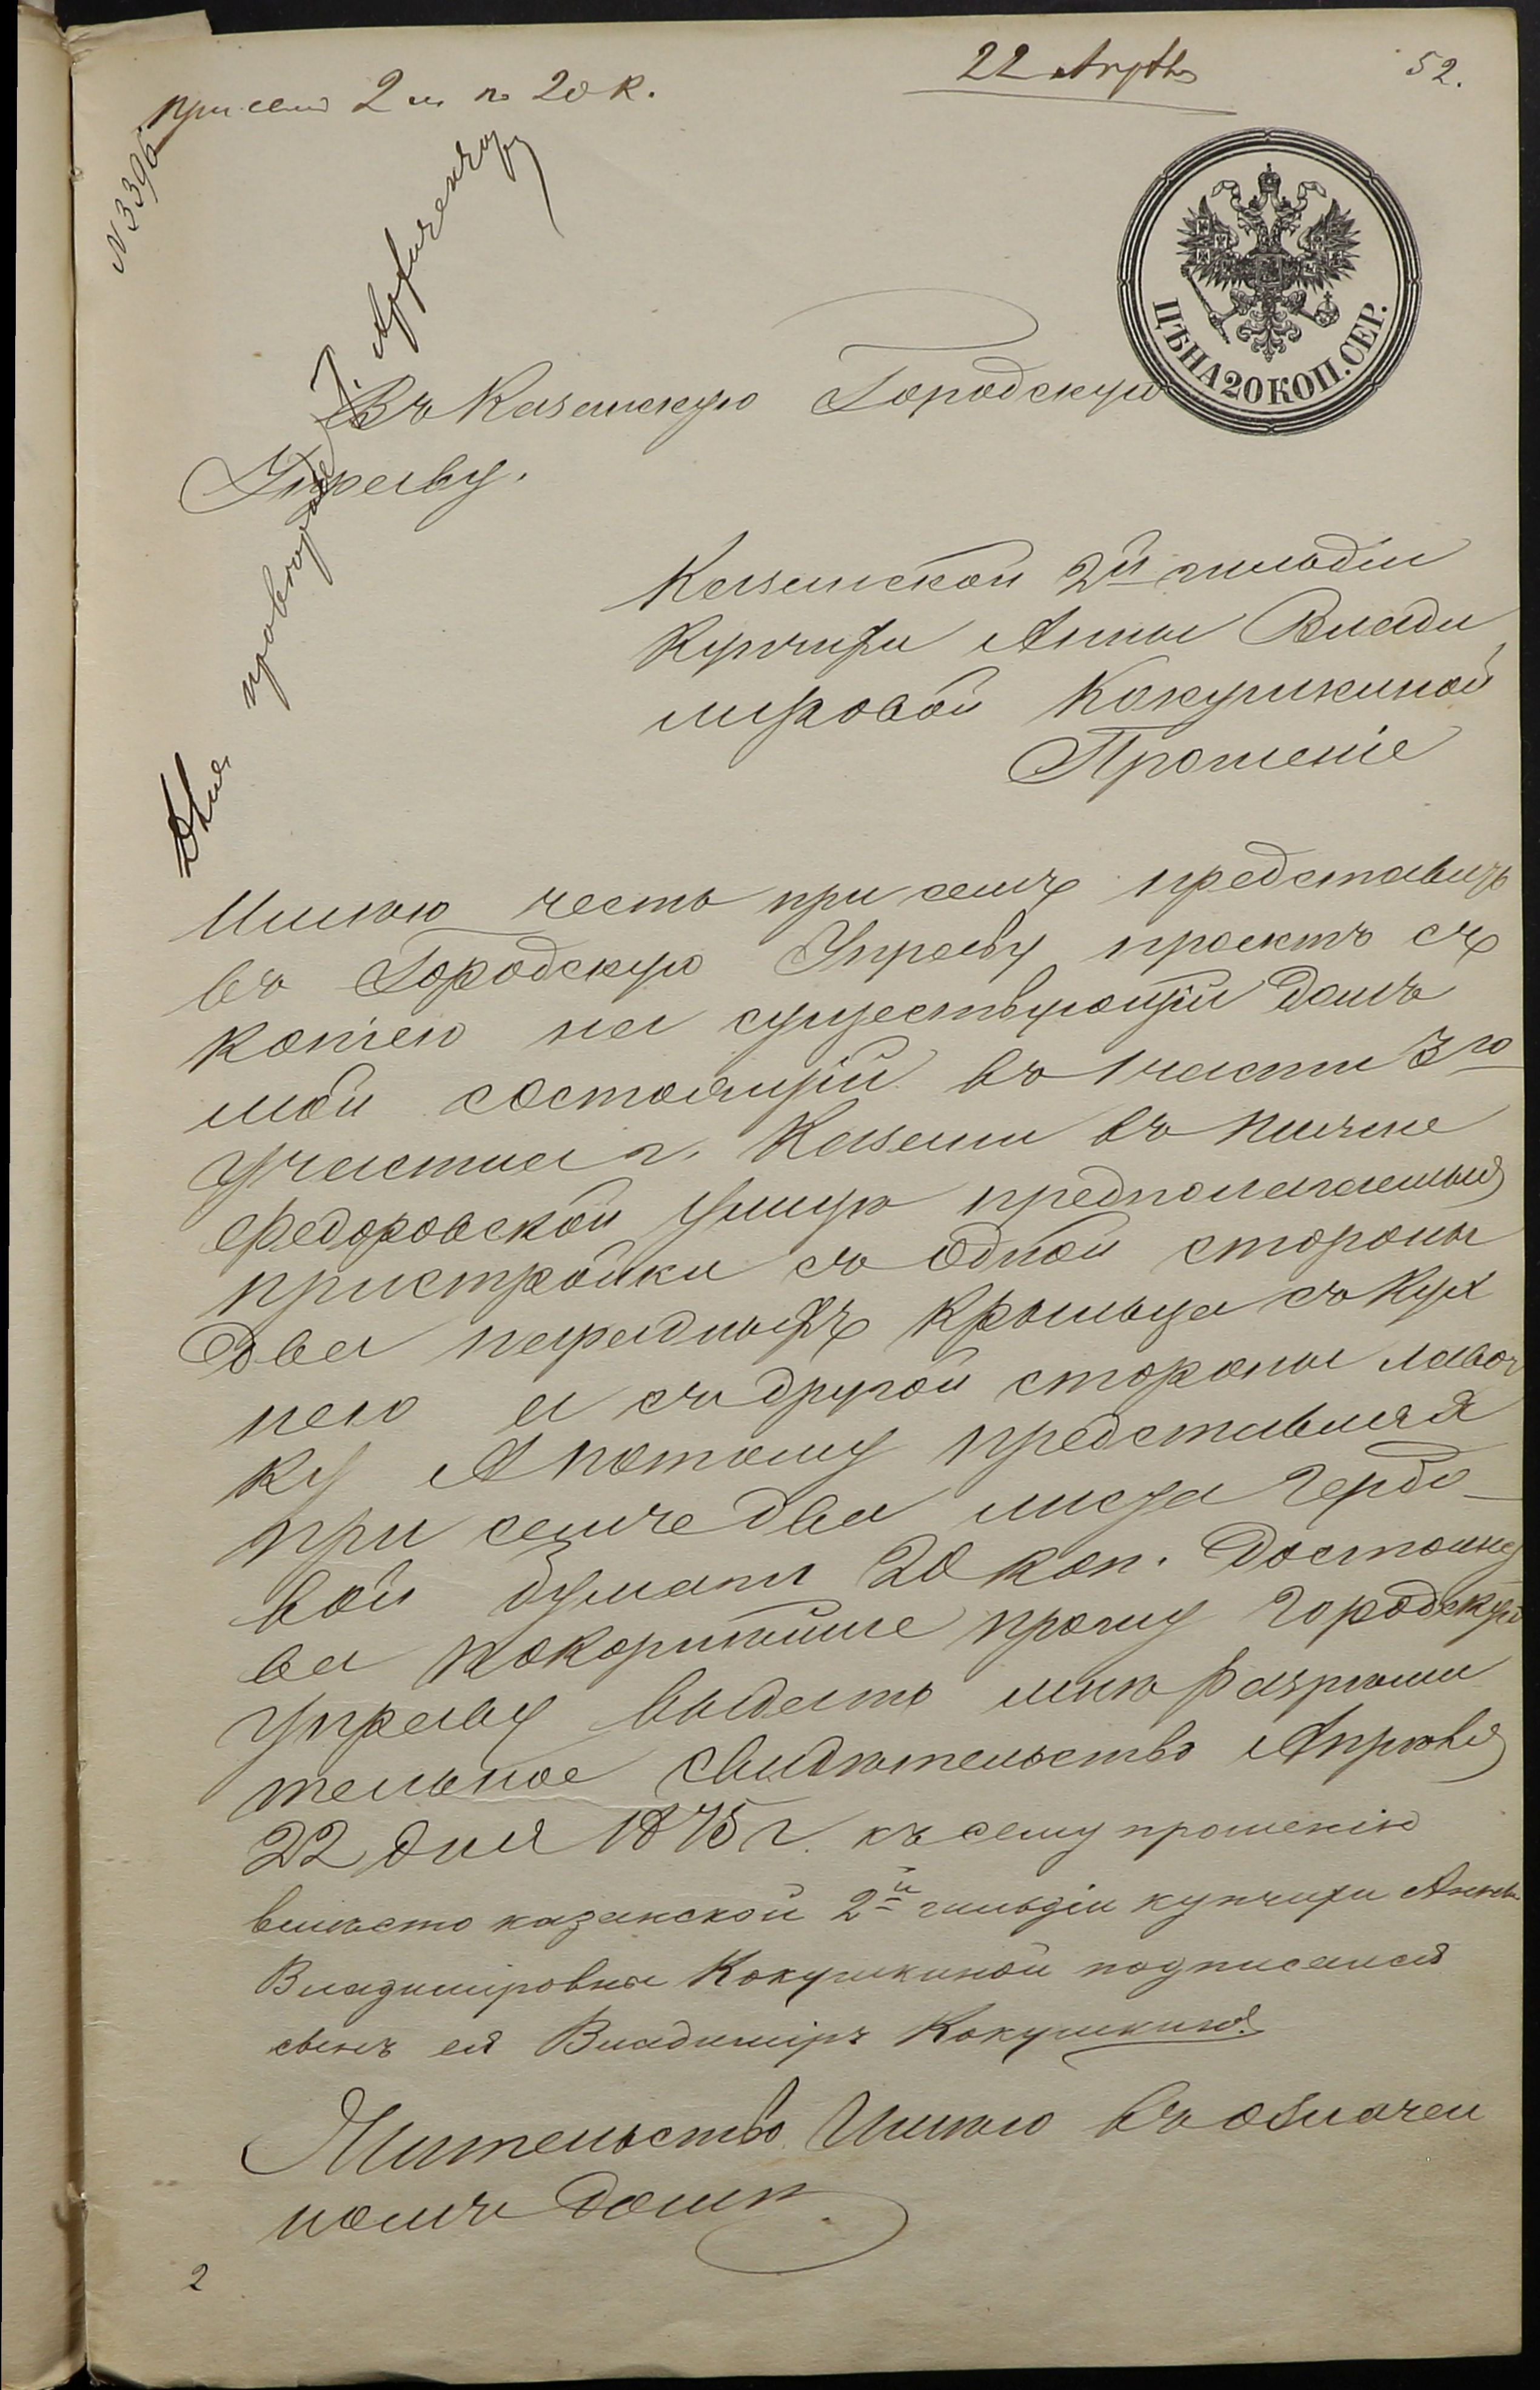 22 Апрѣля
52.
при семъ 2 л. по 20 к.
N 3396
Г. Архитектору
Для
ЦѢНА 20 КОП. СЕР.
Въ Казанскую Городскую
Управу.
Казанской 2й гильдіи
Купчихи Анны Влади
мировой Кокушкиной
Прошеніе
Имѣю честь при семъ представить
въ Городскую Управу проектъ съ
копіею на существующій домъ
мой состоящій въ 1 части 3го
участка г. Казани въ Нижне
Федоровской улицѣ предполагаемыя
пристройки съ одной стороны
два парадныхъ крыльца съ Кух
нею а съ другой стороны лавоч
ку А потому представляя
при семъ два листа гербо-
вой бумаги 20 коп. Достоинс
ва покорнѣйше прошу Городскую
управу выдать мнѣ Разрѣши
тельное свидѣтельство Апрѣля
22 дня 1875 г. къ сему прошенію
вмѣсто казанской 2й гильдіи купчихи Анны
Владиміровны Кокушкиной подписался
сынъ ея Владиміръ Кокушкинъ.
Жительство Имѣю въ означен
номъ домѣ
2